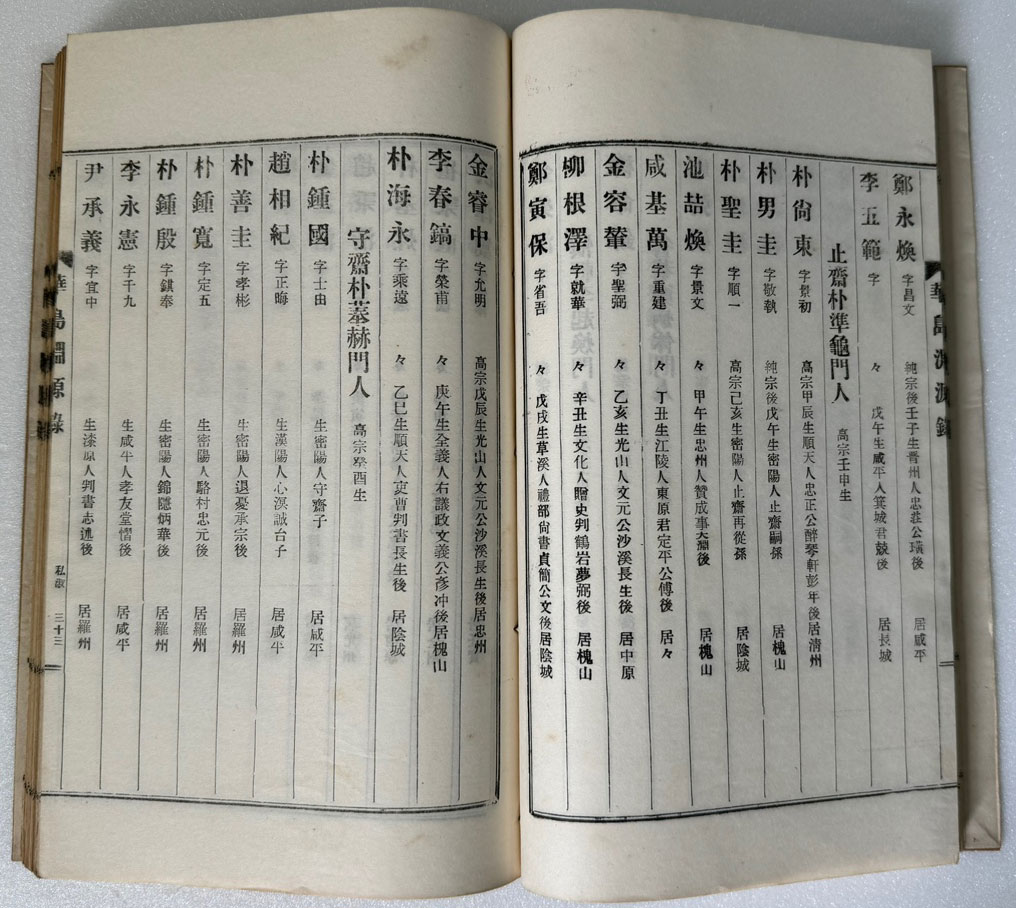 華島淵源錄
鄭永煥 字昌文 純宗後壬子生晋州人忠莊公璜後 居咸平
李五範 字 々 戊午生咸平人箕城君兢後 居長城
止齋朴準龜門人 高宗壬申生
朴尙東 字景初 高宗甲辰生順天人忠正公醉琴軒彭年後居淸州
朴男圭 字敬執 純宗後戊午生密陽人止齋嗣孫 居槐山
朴聖圭 字順一 高宗己亥生密陽人止齋再從孫 居陰城
池喆煥 字景文 々 甲午生忠州人贊成事天淵後 居槐山
咸基萬 字重建 々 丁丑生江陵人東原君定平公傅後 居々
金容輦 字聖弼 々 乙亥生光山人文元公沙溪長生後 居中原
柳根澤 字就華 々 辛丑生文化人贈史判鶴岩夢弼後 居槐山
鄭寅保 字省吾 々 戊戌生草溪人禮部尙書貞簡公文後居陰城
金睿中 字允明 高宗戊辰生光山人文元公沙溪長生後居忠州
李春鎬 字榮甫 々 庚午生全義人右議政文義公彥冲後居槐山
朴海永 字乘遠 々 乙巳生順天人吏曹判書長生後 居陰城
守齋朴菶赫門人 高宗癸酉生
朴鍾國 字士由 生密陽人守齋子 居咸平
趙相紀 字正晦 生漢陽人心溟誠台子 居咸平
朴善圭 字孝彬 生密陽人退憂承宗後 居羅州
朴鍾寬 字定五 生密陽人駱村忠元後 居羅州
朴鍾殷 字錤奉 生密陽人錦隱炳華後 居羅州
李永憲 字千九 生咸平人孝友堂慴後 居咸平
尹承義 字宜中 生漆原人判書志述後 居羅州
華島淵源錄 私淑 三十三